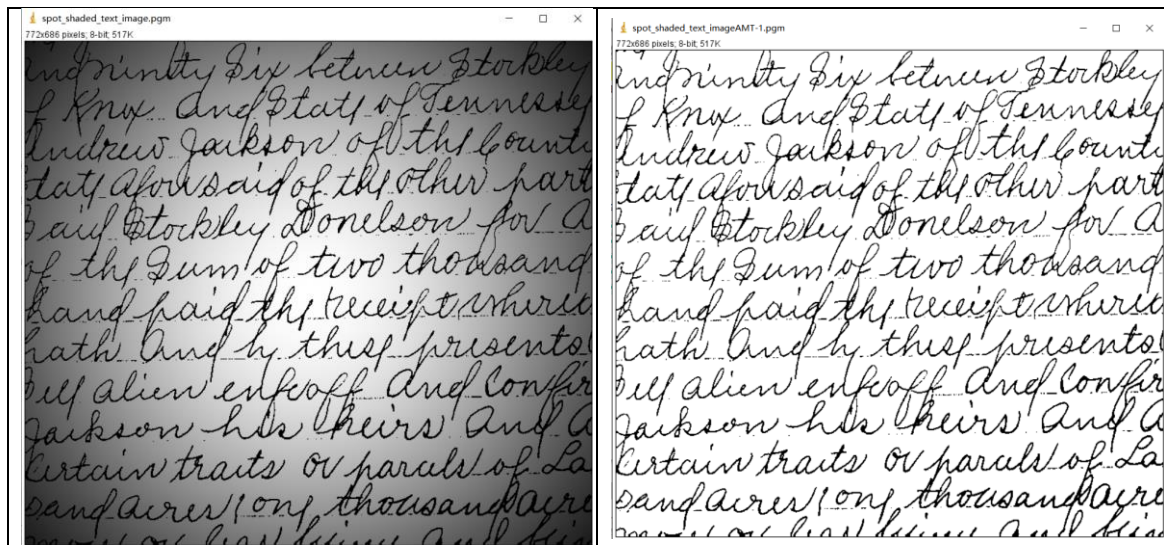 spot_shaded_text_image.pgm
772x686 pixels; 8-bit; 517K
and ninety Six between Stockley
of Knox And State of Tennessey
Andrew Jackson of the Count
tate aforesaid of the other part
said Stockley Donelson for A
of the Sum of two thousand
hand paid the receipt where
hath And by these presents
sell alien enfeoff And Confir
Jackson his heirs And A
Certain traits or parcels of La
sand acres one thousand acre
spot_shaded_text_imageAMT-1.pgm
772x686 pixels; 8-bit; 517K
and ninety Six between Stockley
of Knox And State of Tennessey
Andrew Jackson of the Count
tate aforesaid of the other part
said Stockley Donelson for A
of the Sum of two thousand
hand paid the receipt where
hath And by these presents
sell alien enfeoff And Confir
Jackson his heirs And A
Certain traits or parcels of La
sand acres one thousand acre